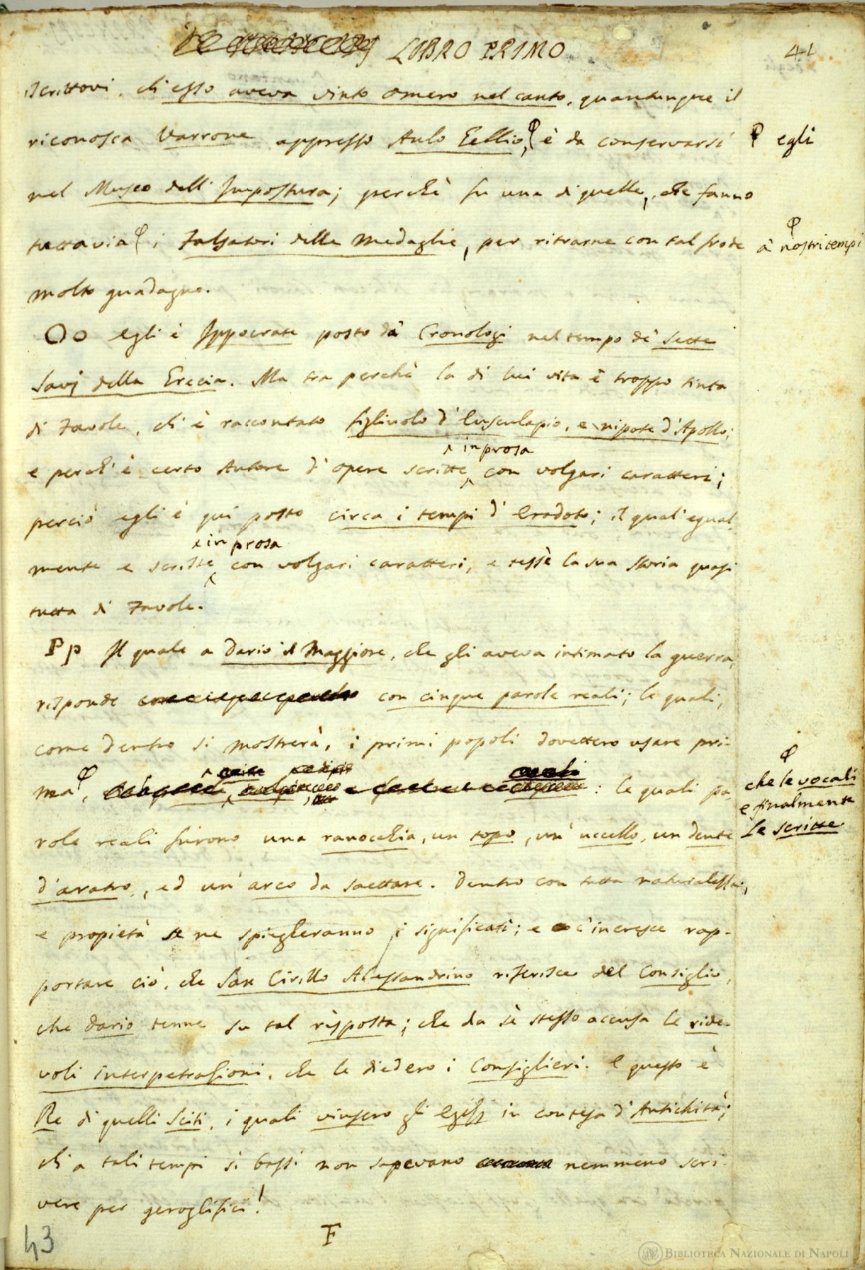 LIBRO PRIMO
41
Scrittori, ch'esso aveva vinto Omero nel canto, quantunque il
riconosca Varrone appresso Aulo Gellio, è da conservarsi
egli
nel Museo dell'Impostura; perchè fu una di quelle, che fanno
tuttavia i Falsatori delle Medaglie, per ritrarne con tal frode
a' nostri tempi
molto guadagno.
Oo Egli è Ippocrate posto da' Cronologi nel tempo de' Sette
Savj della Grecia. Ma tra perchè la di lui vita è troppo tinta
di Favole, ch'è raccontato figliuolo d'Esculapio, e nipote d'Apollo;
e perch'è certo Autore d'opere scritte in prosa con volgari caratteri;
perciò egli è qui posto circa i tempi d'Erodoto; il qual'egual-
mente e scrisse in prosa con volgari caratteri, e tessè la sua Storia quasi
tutta di Favole.
Pp Il quale a Dario il Maggiore, che gli aveva intimato la guerra,
risponde con cinque parole reali; le quali,
come dentro si mostrerà, i primi popoli dovettero usare pri-
ma, : le quali pa
che le vocali
e finalmente
le scritte
role reali furono una ranocchia, un topo, un'uccello, un dente
d'aratro, ed un'arco da saettare. Dentro con tutta naturalezza,
e propietà se ne spiegheranno i significati; e c'incresce rap-
portare ciò, che San Cirillo Alessandrino riferisce del Consiglio,
che Dario tenne su tal risposta; che da sè stesso accusa le ride-
voli interpetrazioni, che le diedero i Consiglieri. E questo è
Re di quelli Sciti, i quali vinsero gli Egizj in contesa d'Antichità;
ch'a tali tempi sì bassi non sapevano nemmeno scri-
vere per geroglifici!
F
43
BIBLIOTECA NAZIONALE DI NAPOLI